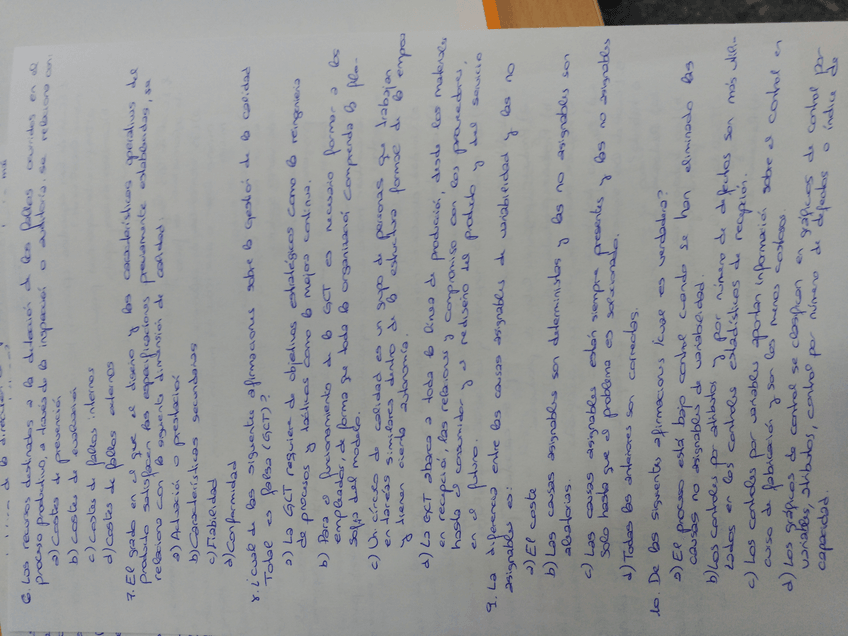 6. Los recursos destinados a la detección de los fallos ocurridos en el
proceso productivo, a través de la inspección o auditoría, se relaciona con:
a) Costes de prevención
b) Costes de evaluación
c) Costes de fallos internos
d) Costes de fallos externos
7. El grado en el que el diseño y las características operativas del
producto satisfacen las especificaciones previamente establecidas, se
relaciona con la siguiente dimensión de calidad.
a) Actuación o prestación
b) Características secundarias
c) Fiabilidad
d) Conformidad
8. ¿Cuál de las siguientes afirmaciones sobre la gestión de la calidad
Total es falsa (GCT)?
a) La GCT requiere de objetivos estratégicos como la reingeniería
de procesos y tácticos como la mejora continua.
b) Para el funcionamiento de la GCT es necesario formar a los
empleados, de forma que toda la organización comprenda la filo-
sofía del modelo.
c) Un círculo de calidad es un grupo de personas que trabajan
en tareas similares dentro de la estructura formal de la empresa
y tienen cierta autonomía.
d) La GCT abarca a toda la línea de producción, desde los materiales
en recepción, las relaciones y compromiso con los proveedores,
hasta el consumidor y el rediseño del producto y del servicio
en el futuro.
9. La diferencia entre las causas asignables de variabilidad y las no
asignables es:
a) El coste
b) Las causas asignables son deterministas y las no asignables son
aleatorias.
c) Las causas asignables están siempre presentes y las no asignables
solo hasta que el problema es solucionado.
d) Todas las anteriores son correctas.
10. De las siguientes afirmaciones ¿cual es verdadera?
a) El proceso está bajo control cuando se han eliminado las
causas no asignables de variabilidad.
b) Los controles por atributos y por número de defectos son más utili-
zados en los controles estadísticos de recepción.
c) Los controles por variables aportan información sobre el control en
curso de fabricación y son los menos costosos.
d) Los gráficos de control se clasifican en gráficos de control por
variables, atributos, control por número de defectos o índice de
capacidad.